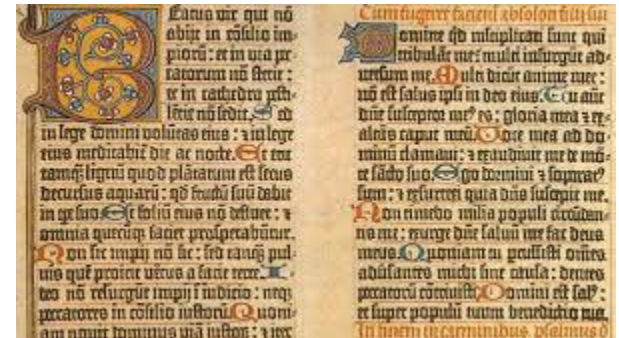 Beatus vir qui nō
abijt in cōsilio im-
piorū: et in via pec-
catorum nō stetit:
et in cathedra pesti-
lētie nō sedit. Sed
in lege domini volūtas eius: ⁊ in lege
eius meditabit̄ die ac nocte. Et erit
tamqȝ lignū quod plātatum est secus
decursus aquarū: qd fructū suū dabit
in tꝑe suo. Et foliū eius nō defluet: ⁊
omnia quecūqȝ faciet prosperabūtur.
Non sic impij nō sic: sed tanqȝ pul-
uis quē proicit vētus a facie terre. I-
deo nō resurgūt impij ī iudicio: neqȝ
peccatores in cōsilio iustorū. Quoni-
am nouit dominus viā iustorū: ⁊ iter
Cum fugeret a facie absolon filij sui
Domine qd multiplicati sunt qui
tribulāt me: multi insurgūt ad-
uersum me. Multi dicūt anime mee:
nō est salus ipsi in deo eius. Tu autē
dn̄e susceptor meꝰ es: gloria mea ⁊ ex-
altās caput meū. Voce mea ad do-
minū clamaui: ⁊ exaudiuit me de mō-
te sācto suo. Ego dormiui ⁊ soporatꝰ
sum: ⁊ exsurrexi quia dn̄s suscepit me.
Non timebo milia populi circūdan-
tis me: exurge dn̄e saluū me fac deus
meus. Quoniam tu percussisti omēs
aduersantes michi sine causa: dentes
peccatorū cōtriuisti. Domini est salꝰ:
et super populū tuum benedictio tua.
In finem in carminibus psalmus d